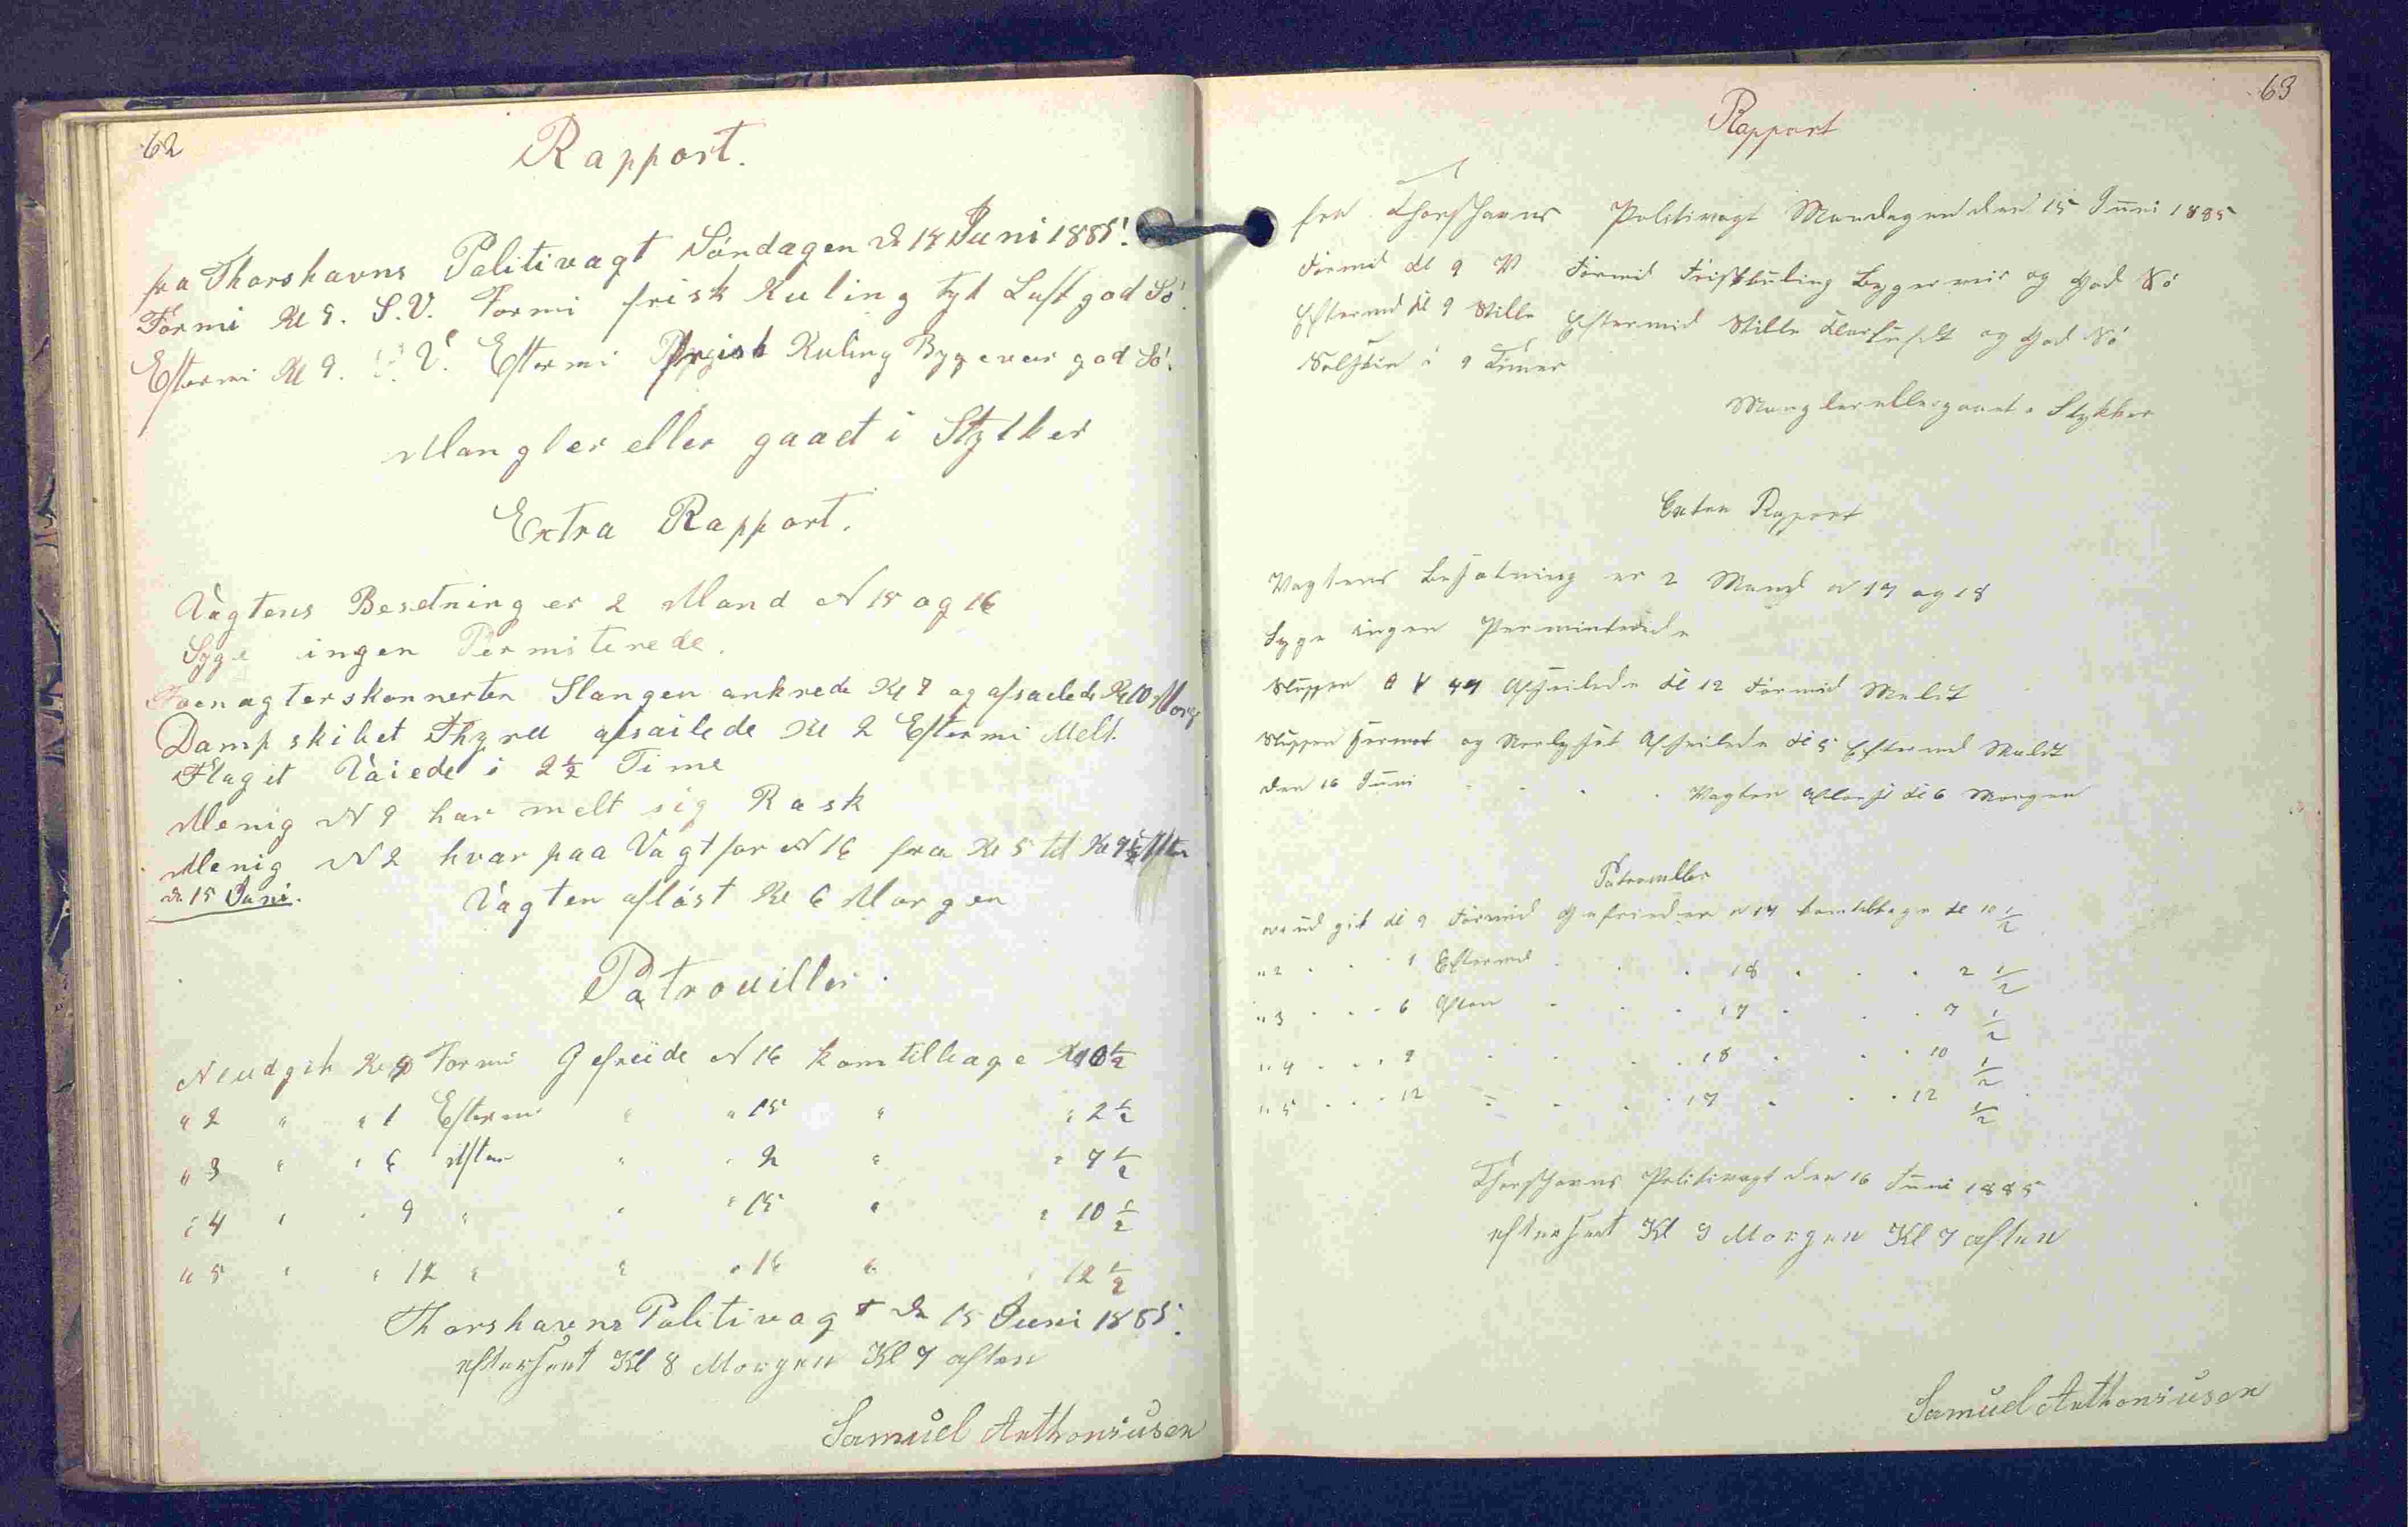 62
Rapport.
fra Thorshavns Politivagt Søndagen d 14 Juni 1885.
Formi Kl 9. S.V. Formi frisk Kuling tyk Luft god Sø.
Eftermi Kl 9. V. Eftermi frisk Kuling Bygevær god Sø.
Mangler eller gaaet i Stykker
Extra Rapport.
Vagtens Besetning er 2 Mand N 15 og 16
Syge ingen Permiterede.
Foenagterskonnerten Slangen ankrede Kl 7 og afsailede Kl 10 Morg
Dampskibet Thyra afsailede Kl 2 Eftermi Melt.
Flagit Vaiede i 2½ Time
Menig N 9 har melt sig Rask
Menig N 2 hvar paa Vagt for N 16 fra Kl 5 til Kl 9½ Aften
d. 15 Juni.
Vagten afløst Kl 6 Morgen
Patrouiller.
N 1 udgik Kl 9 Formi Gefreide N 16 kom tilbage Kl 10½
" 2 " " 1 Efterm " " 15 " " 2½
" 3 " " 6 Aften " " 2 " " 7½
" 4 " " 9 " " " 15 " " 10½
" 5 " " 12 " " " 16 " " 12½
Thorshavns Politivagt d 15 Juni 1885.
efterseet Kl 8 Morgen Kl 7 aften
Samuel Anthoniusen
63
Rapport
fra Thorshavns Politivagt Mandagen den 15 Juni 1885
Formid Kl 9 V Formid Friskkuling Bygeveir og God Sø
Eftermd Kl 9 Stille Eftermid Stille Klarluft og God Sø
Solskin i 9 Timer
Mangler eller gaaet i Stykker
Extra Raport
Vagtens Besatning er 2 Mand N 17 og 18
Syge ingen Perminterede
Sluppen 44 Afseilede Kl 12 Formid Meldt
Sluppen og Afseilede Kl 5 Eftermd Meldt
den 16 Juni Vagten Afløst Kl 6 Morgen
Patrouller
N 1 ud gik Kl 9 Formid Gefreider N 17 kom tilbage Kl 10 ½
" 2 . . . 1 Eftermd . . . 18 . . . 2 ½
" 3 . . . 6 Aften . . . 17 . . . 7 ½
" 4 . . . 9 . . . 18 . . . 10 ½
" 5 . . . 12 . . . 17 . . . 12 ½
Thorshavns Politivagt den 16 Juni 1885
efterseet Kl 9 Morgen Kl 7 aften
Samuel Anthoniusen